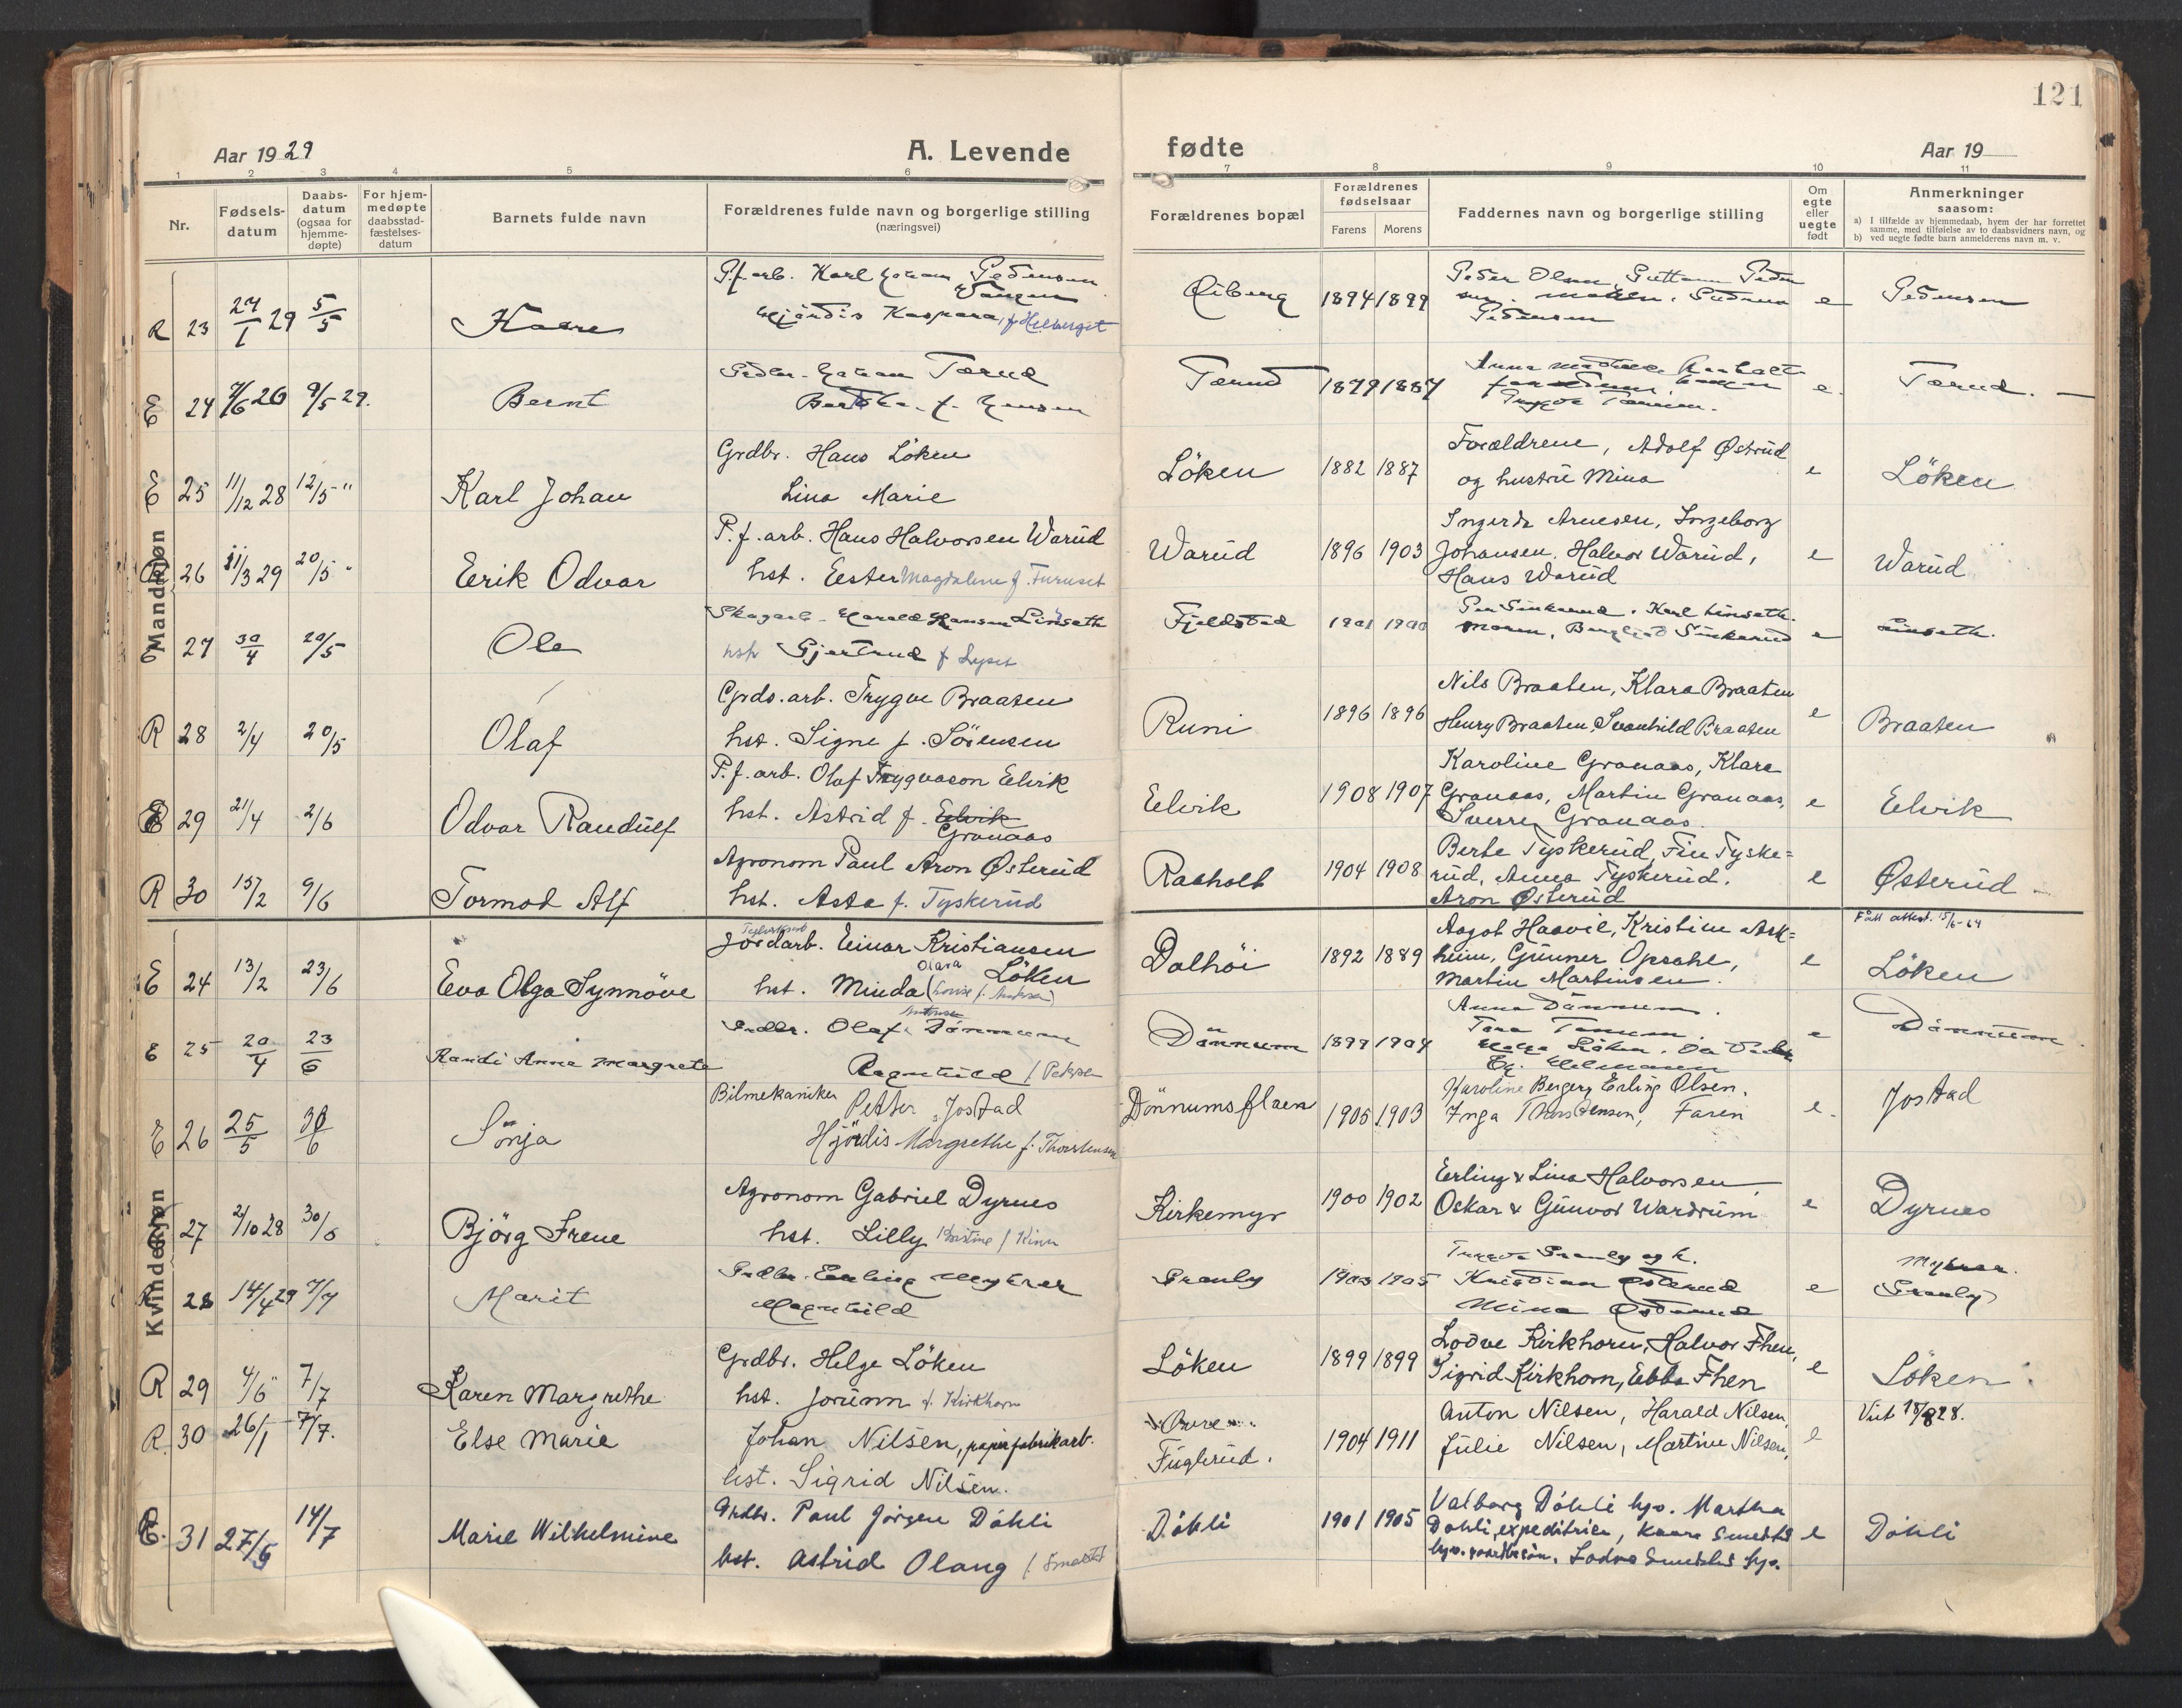 121
Aar 1929
A. Levende
fødte
Aar 19
1 2 3 4 5 6 7 8 9 10 11
Nr.
Fødsels-
datum
Daabs-
datum
(ogsaa for
hjemme-
døpte)
For hjem-
medøpte
daabsstad-
fæstelses-
datum
Barnets fulde navn
Forældrenes fulde navn og borgerlige stilling
(næringsvei)
Forældrenes bopæl
Forældrenes
fødselsaar
Farens Morens
Faddernes navn og borgerlige stilling
Om
egte
eller
uegte
født
Anmerkninger
saasom:
a) I tilfælde av hjemmedaab, hvem der har forrettet
samme, med tilføielse av to daabsvidners navn, og
b) ved uegte fødte barn anmelderens navn m. v.
Mandkjøn
R 23 24/1 29 5/5
Kaare
P.f.arb. Karl Johan Pedersen
Hjördis Kaspara, f. Helberget
1894 1899
Peder Olsen
Pedersen
e
Pedersen
E 24 26 9/5 29.
Bernt
Johan Tærud
f. Jensen
Tærud
1879 1887
e.
Tærud.
E 25 11/12 28 12/5 "
Karl Johan
Grdbr. Hans Löken
Lina Marie
Löken
1882 1887
Forældrene, Adolf Østrud
og hustru Mina
e
Löken
R 26 11/3 29 20/5 "
Erik Odvar
P.f.arb. Hans Halvorsen Warud
hst. Ester Magdalene f. Furuset
Warud
1896 1903
Ingerda Arnesen, Ingeborg
Johansen, Halvor Warud,
Hans Warud
e
Warud
E 27 30/4 20/5
Ole
Skogarb. Harald Hansen Linseth
hst. Gjertrud f. Lyset
Fjeldstad
Karl Linseth.
Moren,
e
Linseth.
R 28 2/4 20/5
Olaf
Grds.arb. Trygve Braaten
hst. Signe f. Sörensen
Runi
1896 1896
Nils Braaten, Klara Braaten
Henry Braaten, Svanhild Braaten
e
Braaten
E 29 21/4 2/6
Odvar Randulf
P.f.arb. Olaf Trygvason Elvik
hst. Astrid f. Elvik
Granaas
Elvik
1908 1907
Karoline Granaas, Klara
Granaas, Martin Granaas,
Sverre Granaas.
e
Elvik
R 30 15/2 9/6
Tormod Alf
Agronom Paul Aron Østerud
hst. Asta f. Tyskerud
Raaholt
1904 1908
Berte Tyskerud, Fin Tyske=
rud, Anna Tyskerud.
Aron Østerud
e
Østerud
Kvindekjøn
E 24 13/2 23/6
Eva Olga Synnöve
Jordarb. Einar Kristiansen
Löken
Olava
hst. Minda (Lovise f. Andersen)
Dalhöi
1892 1889
Aagot Haavie, Kristine Ask=
heim, Gunner Opsahl,
Martin Martinsen.
e
Fått attest. 15/6-64
Löken
E 25 20/4 23/6
Randi Anna Margrete
Grdbr. Olaf Dönnum
Ragnhild
Dönnum
1899 1904
Anna Dönnum.
e
Dönnum.
E 26 25/5 30/6
Sönja
Bilmekaniker
Petter Jostad
Hjördis Margrethe f. Thorstensen
Dönnumsflaen
1905 1903
Karoline Berger, Erling Olsen.
Inga Thorstensen, Faren
e.
Jostad
R 27 2/10 28 30/6
Björg Irene
Agronom Gabriel Dyrnes
hst. Lilly Kristine f. Kinn
Kirkemyr
1900 1902
Erling & Lina Halvorsen,
Oskar & Gunvor Wardrum
e
Dyrnes
R 28 14/4 29 7/7
Marit
Grdbr. Erling Myhrer
Magnhild
Granly
1903 1905
Trygve Granly og h.
Kristian Østerud
Mina Østerud
e
Myhrer.
Granly
R 29 4/6 " 7/7
Karen Margrethe
Grdbr. Helge Löken
hst. Jorunn f. Kirkhorn
Löken
1899 1899
Lodve Kirkhorn, Halvor Fhen,
Sigrid Kirkhorn, Ebba Fhen
e
Löken
R. 30 26/1 7/7.
Else Marie
Johan Nilsen, papirfabrikarb.
hst. Sigrid Nilsen.
Fuglerud.
1904 1911
Anton Nilsen, Harald Nilsen,
Julie Nilsen, Martine Nilsen,
e
Viet 18/8 28.
E. 31 27/5 14/7
Marie Wilhelmine
Grdbr. Paul Jörgen Döhli
hst. Astrid Olaug
Döhli
1901 1905
Valborg Döhli hjv. Martha
Döhli, expeditrice, Kaare
e
Döhli